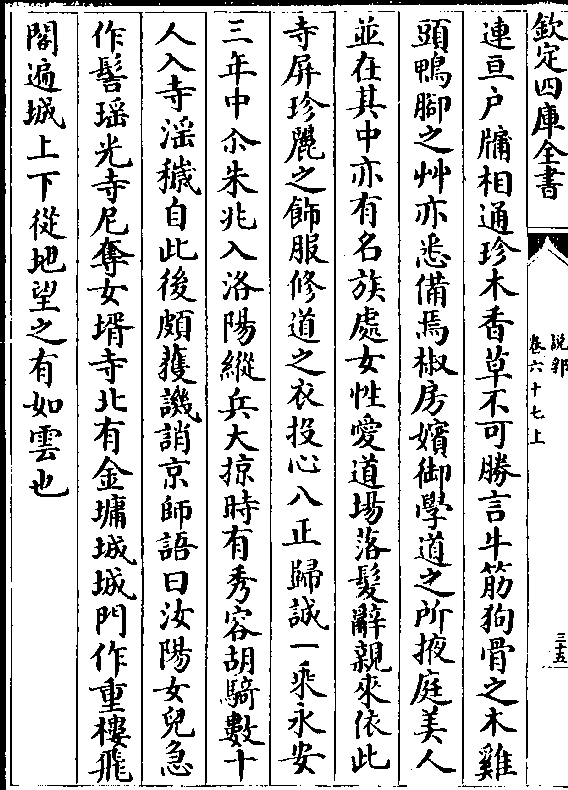 欽定四庫全書
說郛
卷六十七上
三十五
連亘户牖相通珍木香草不可勝言牛筋狗骨之木雞
頭鴨脚之艸亦悉備焉椒房嬪御學道之所掖庭美人
並在其中亦有名族處女性愛道場落髮辭親來依此
寺屏珍麗之飾服修道之衣投心八正歸誠一乘永安
三年中尒朱兆入洛陽縱兵大掠時有秀容胡騎數十
人入寺滛穢自此後頗蒦譏誚京師語曰汝陽女兒急
作髻瑶光寺尼奪女壻寺北有金墉城城門作重樓飛
閣遍城上下從地望之有如雲也